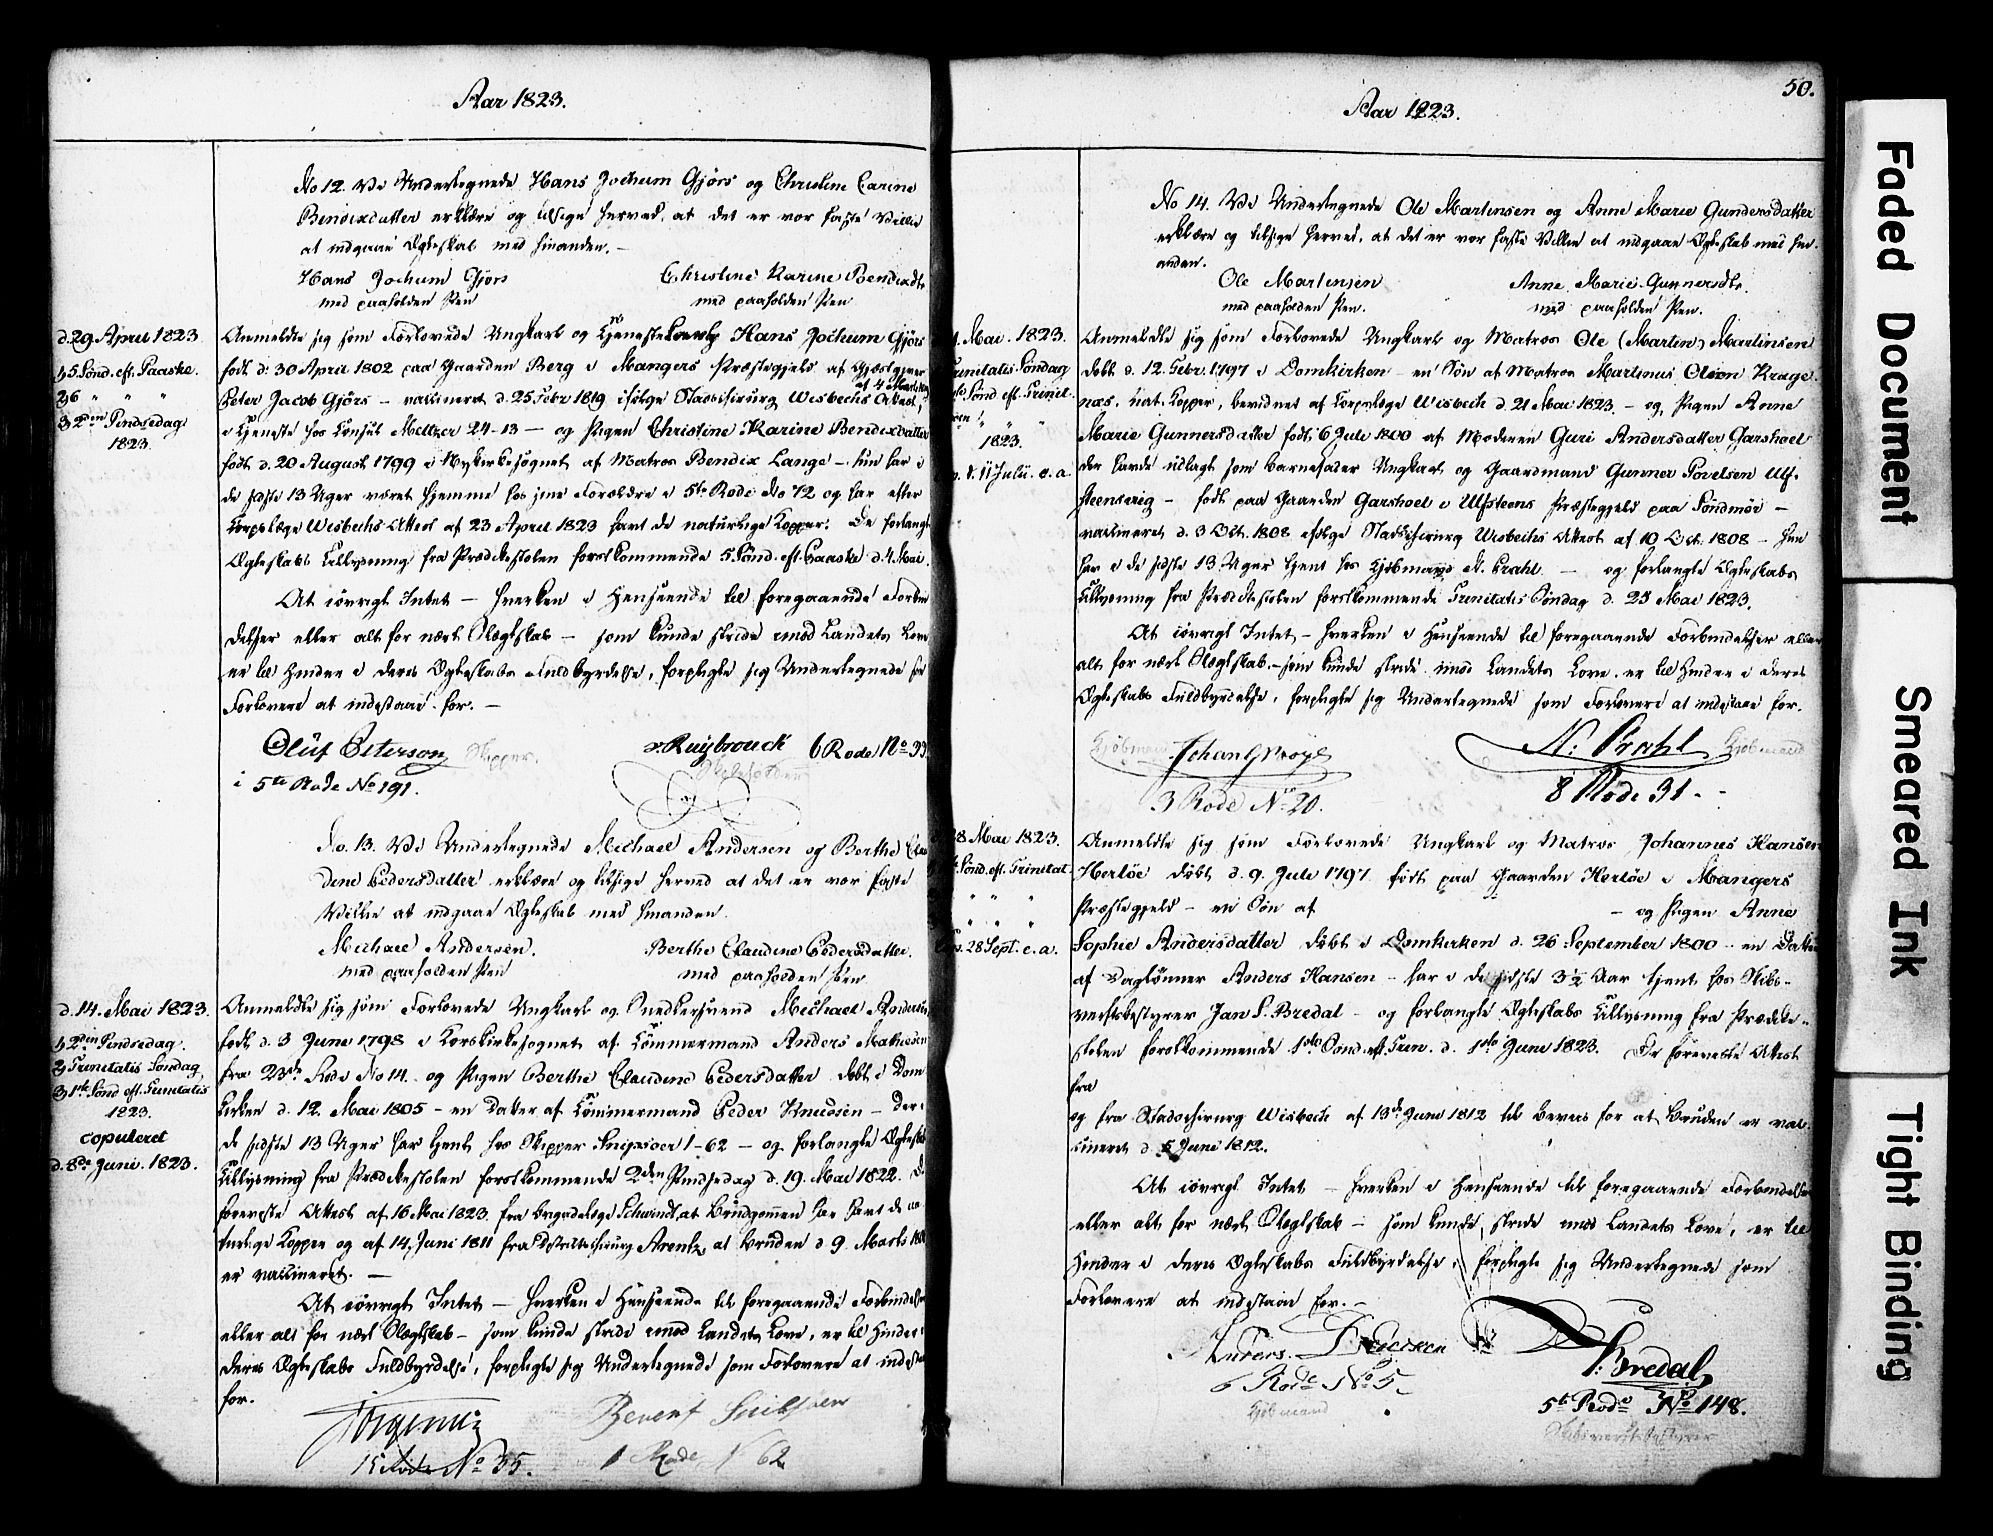 Aar 1823.
No 12. Vi Undertegnede Hans Jochum Gjørs og Christine Carine
Bendixdatter erklære og tilstge herved, at det er vor faste Villie
at indgaae Ægteskab med hinanden. –
Hans Jochum Gjørs Christine Karine Bendixdtr
med paaholden Pen med paaholden Pen
d. 29 April 1823 Anmeldte sig som Forlovede Ungkarl og Hans Jochum Gjørs
5 Sønd. eft. Paaske. født d: 30 April 1802 paa Gaarden Berg i Mangers Præstegjeld af
2) 6 " " " Peter Jacob Gjørs – vaccineret d. 25 Febr 1819 ifølge Stadschirurg Wisbechs Attest,
3 2den Pindsedag i Tjeneste hos Consul Meltzer 24-13 – og Pigen Christine Karine Bendixdatter
1823. født d. 20 August 1799 i Nykirkesognet af Matros Bendix Lange – hun har i
de sidste 13 Uger været hjemme hos sine Forældre i 5te Rode No 72 og har efter
Corpslæge Wisbechs Attest af 23 April 1823 havt de naturlige Kopper. De forlangte
Ægteskabs Tillysning fra Prædikestolen førstkommende 5 Sønd. eft. Paaske d. 4 Mai.
At iøvrigt Intet – hverken i Henseende til foregaaende Forbin
delser eller alt for nært Slægtskab – som kunde stride imod Landets Love
er til Hinder i deres Ægteskabs Fuldbyrdelse, forpligte sig Undertegnede som
Forlovere at indestaae for. –
Oluf Peterson Skipper. v. Ruybrouck 6 Rode No 33
i 5te Rode No 191.
No. 13. Vi Undertegnede Michael Andersen og Berthe Clau
dine Pedersdatter erklære og tilsige herved at det er vor faste
Villie at indgaae Ægteskab med hinanden.
Michael Andersen. Berthe Claudine Pedersdatter.
med paaholden Pen med paaholden Pen
d. 14. Mai 1823. Anmeldte sig som Forlovede Ungkarl og Snedkersvend Michael Andersen
2den Pindsedag. født d. 3 Juni 1798 i Korskirkesognet af Tømmermand Anders Mathiesen
2) Trinitatis Søndag fra 23de Rode No 14. og Pigen Berthe Claudine Pedersdatter døbt i Dom
3 1ste Sønd eft. Trinitatis kirken d. 12. Mai 1805 – en Datter af Tømmermand Peder Knudsen – der i
1823. de sidste 13 Uger har tjent hos Skipper 1-62 – og forlangte Ægteskabs
copuleret Tillysning fra Prædikestolen førstkommende 2den Pindsedag d. 19. Mai 1822.
d. 8de Juni. 1823. foreviste Attest af 16 Mai 1823. fra Brigadelæge Schwindt, at Brudgommen har havt de na
turlige Kopper og af 14. Juni 1811 fra Districtschirurg Arentz, at Bruden d 9. Marts
er vaccineret. –
At iøvrigt Intet – hverken i Henseende til foregaaende Forbindelser
eller alt for nært Slægtskab – som kunde stride imod Landets Love, er til Hinder i
deres Ægteskabs Fuldbyrdelse, forpligte sig Undertegnede som Forlovere at indestaae
for.
Berent
15 Rode No 35. 1 Rode N 62
50.
Aar 1823.
No 14. Vi Undertegnede Ole Martensen og Anne Marie Gundersdatter
erklære og tilsige herved, at det er vor faste Villie at indgaae Ægteskab med hin
anden.
Ole Martensen Anne Marie Gunnersdtr.
med paaholden Pen. med paaholden Pen.
Mai. 1823. Anmeldte sig som Forlovede Ungkarl og Matros Ole (Martin) Martinsen
Trinitatis Søndag døbt d. 12. Febr. 1797 i Domkirken – en Søn af Matros Martinus Olson Krage
Sønd eft. Trinit. næs. nat. Kopper, bevidnet af Corpslæge Wisbech d. 21 Mai 1823. – og Pigen Anne
1823. Marie Gunnersdatter født 6 Jule 1800 af Moderen Guri Andersdatter Garshoel
11 Julii. e. a. der havde udlagt som Barnefader Ungkarl og Gaardmand Gunner Povelsen Ulf-
steensvig – født paa Gaarden Garshoel i Ulfsteens Præstegjeld paa Søndmør –
vaccineret d. 3 Oct. 1808 ifølge Stadschirurg Wisbechs Attest af 10 Oct. 1808 – hun
har i de sidste 13 Uger tjent hos Kjøbmand N. Prahl – og forlangte Ægteskabs
Tillysning fra Prædikestolen førstkommende Trinitatis Søndag d. 25 Mai 1823.
At iøvrigt Intet – hverken i Henseende til foregaaende Forbindelser eller
alt for nært Slægtskab – som kunde stride imod Landets Love, er til Hinder i deres
Ægteskabs Fuldbyrdelse, forpligte sig Undertegnede som Forlovere at indestaae for.
Kjøbmand Johan N. Prahl Kjøbmand
3 Rode No 20. 8 Rode 31.
28 Mai 1823. Anmeldte sig som Forlovede Ungkarl og Matros Johannes Hansen
Sønd. eft. Trinitat. Herløe døbt d. 9. Jule 1797 født paa Gaarden Herløe i Mangers
" " " Præstegjeld – en Søn af – og Pigen Anne
28 Sept. e. a. Sophie Andersdatter døbt i Domkirken d. 26 September 1800 – en Datter
af Dagløner Anders Hansen – har i de sidste 3½ Aar tjent hos Skibs-
verftsbestyrer Jan S. Bredal – og forlangte Ægteskabs Tillysning fra Prædike-
stolen førstkommende 1ste Sønd. eft. Trin. d. 1ste Juni 1823. De foreviste Attest
fra
og fra Stadschirurg Wisbech af 13de Juni 1812 til Beviis for at Bruden er vac
cineret d. 5 Juni 1812.
At iøvrigt Intet – hverken i Henseende til foregaaende Forbindelser
eller alt for nært Slægtskab – som kunde stride mod Landets Love, er til
Hinder i deres Ægteskabs Fuldbyrdelse, forpligte sig Undertegnede som
Forlovere at indestaae for. –
Anders Bredal
6 Rode No 5. 5te Rode No 148.
Kjøbmand Skibsverftsbestyrer
Faded Document
Smeared Ink
Tight Binding